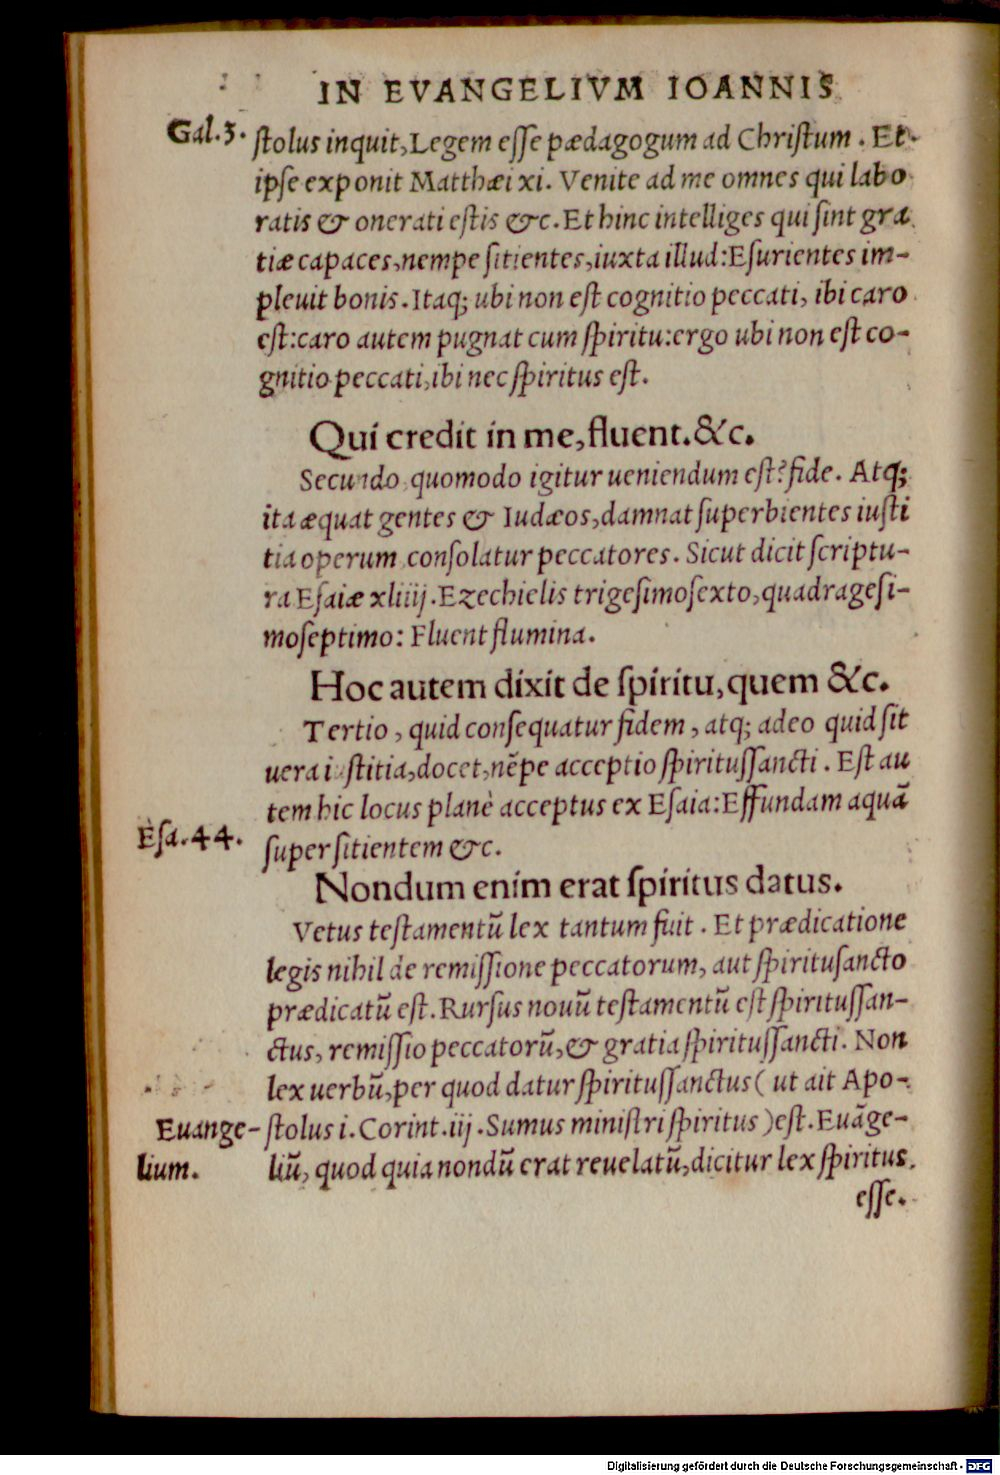 IN EVANGELIVM IOANNIS
Gal.3. ſtolus inquit, Legem eſſe pædagogum ad Chriſtum. Et
ipſe exponit Matthæi xi. Venite ad me omnes qui labo
ratis & onerati eſtis &c. Et hinc intelliges qui ſint gra
tiæ capaces, nempe ſitientes, iuxta illud: Eſurientes im-
pleuit bonis. Itaq; ubi non eſt cognitio peccati, ibi caro
eſt: caro autem pugnat cum ſpiritu: ergo ubi non eſt co-
gnitio peccati, ibi nec ſpiritus eſt.
Qui credit in me, fluent. &c.
Secundo quomodo igitur ueniendum eſt? fide. Atq;
ita æquat gentes & Iudæos, damnat ſuperbientes iuſti
tia operum conſolatur peccatores. Sicut dicit ſcriptu-
ra Eſaiæ xliiij. Ezechielis trigeſimoſexto, quadrageſi-
moſeptimo: Fluent flumina.
Hoc autem dixit de ſpiritu, quem &c.
Tertio, quid conſequatur fidem, atq; adeo quid ſit
uera iuſtitia, docet, nẽpe acceptio ſpirituſſancti. Eſt au
tem hic locus planè acceptus ex Eſaia: Effundam aquã
Eſa.44. ſuper ſitientem &c.
Nondum enim erat ſpiritus datus.
Vetus teſtamentũ lex tantum fuit. Et prædicatione
legis nihil de remiſſione peccatorum, aut ſpirituſancto
prædicatũ eſt. Rurſus nouũ teſtamentũ eſt ſpirituſſan-
ctus, remiſſio peccatorũ, & gratia ſpirituſſancti. Non
lex uerbũ, per quod datur ſpirituſſanctus ( ut ait Apo-
Euange- ſtolus i. Corint. iij. Sumus miniſtri ſpiritus ) eſt. Euãge-
lium. liũ, quod quia nondũ erat reuelatũ, dicitur lex ſpiritus
eſſe.
Digitalisierung gefördert durch die Deutsche Forschungsgemeinschaft - DFG